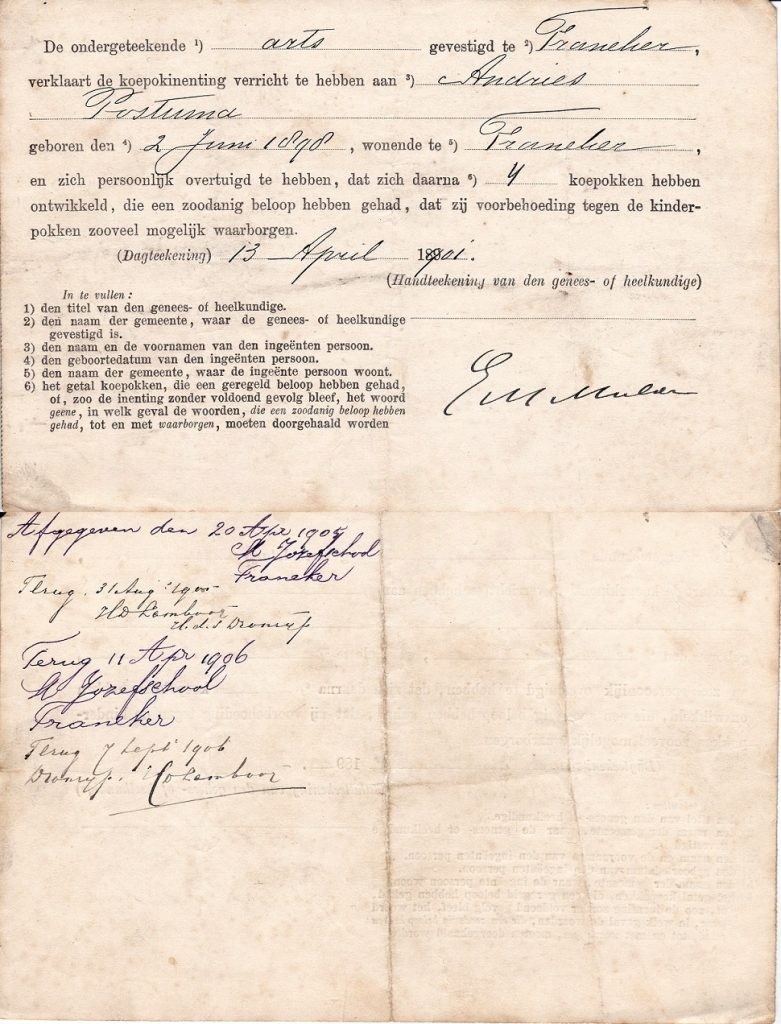 De ondergeteekende ¹) arts gevestigd te ²) Franeker,
verklaart de koepokinenting verricht te hebben aan ³) Andries
Postuma
geboren den ⁴) 2 Juni 1898, wonende te ⁵) Franeker,
en zich persoonlijk overtuigd te hebben, dat zich daarna ⁶) 4 koepokken hebben
ontwikkeld, die een zoodanig beloop hebben gehad, dat zij voorbehoeding tegen de kinder-
pokken zooveel mogelijk waarborgen.
(Dagteekening) 13 April 1901.
(Handteekening van den genees- of heelkundige)
In te vullen:
1) den titel van den genees- of heelkundige.
2) den naam der gemeente, waar de genees- of heelkundige
gevestigd is.
3) den naam en de voornamen van den ingeënten persoon.
4) den geboortedatum van den ingeënten persoon.
5) den naam der gemeente, waar de ingeënte persoon woont.
6) het getal koepokken, die een geregeld beloop hebben gehad,
of, zoo de inenting zonder voldoend gevolg bleef, het woord
geene, in welk geval de woorden, die een zoodanig beloop hebben
gehad, tot en met waarborgen, moeten doorgehaald worden
E M Mulder
Afgegeven den 20 Apr 1905
St Jozefschool
Franeker
Terug. 31 Aug: 1905
HD Lamboor
H.d.S Dronrijp
Terug 11 Apr 1906
St Jozefschool
Franeker
Terug 7 Sept 1906
Dronrijp. HD Lamboor